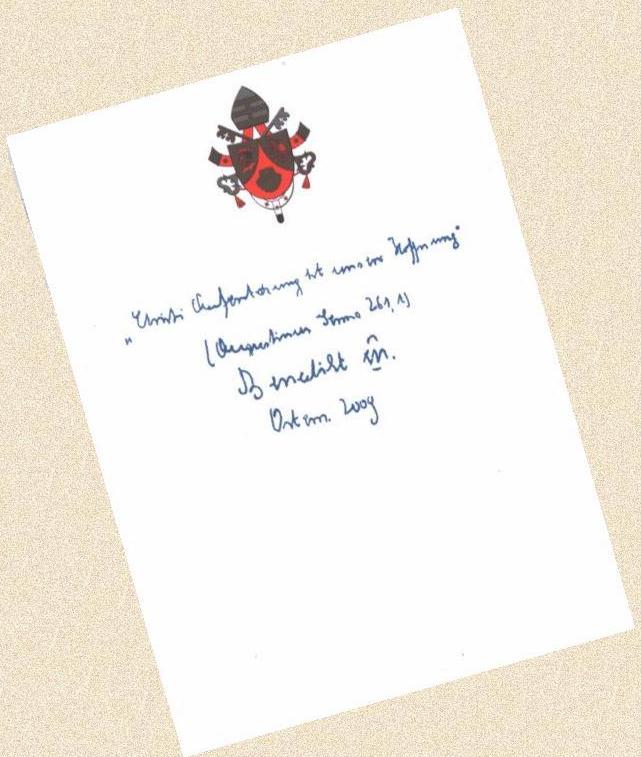 „Christi Auferstehung ist unsere Hoffnung“
(Augustinus Sermo 261,1)
Benedikt
Ostern 2009